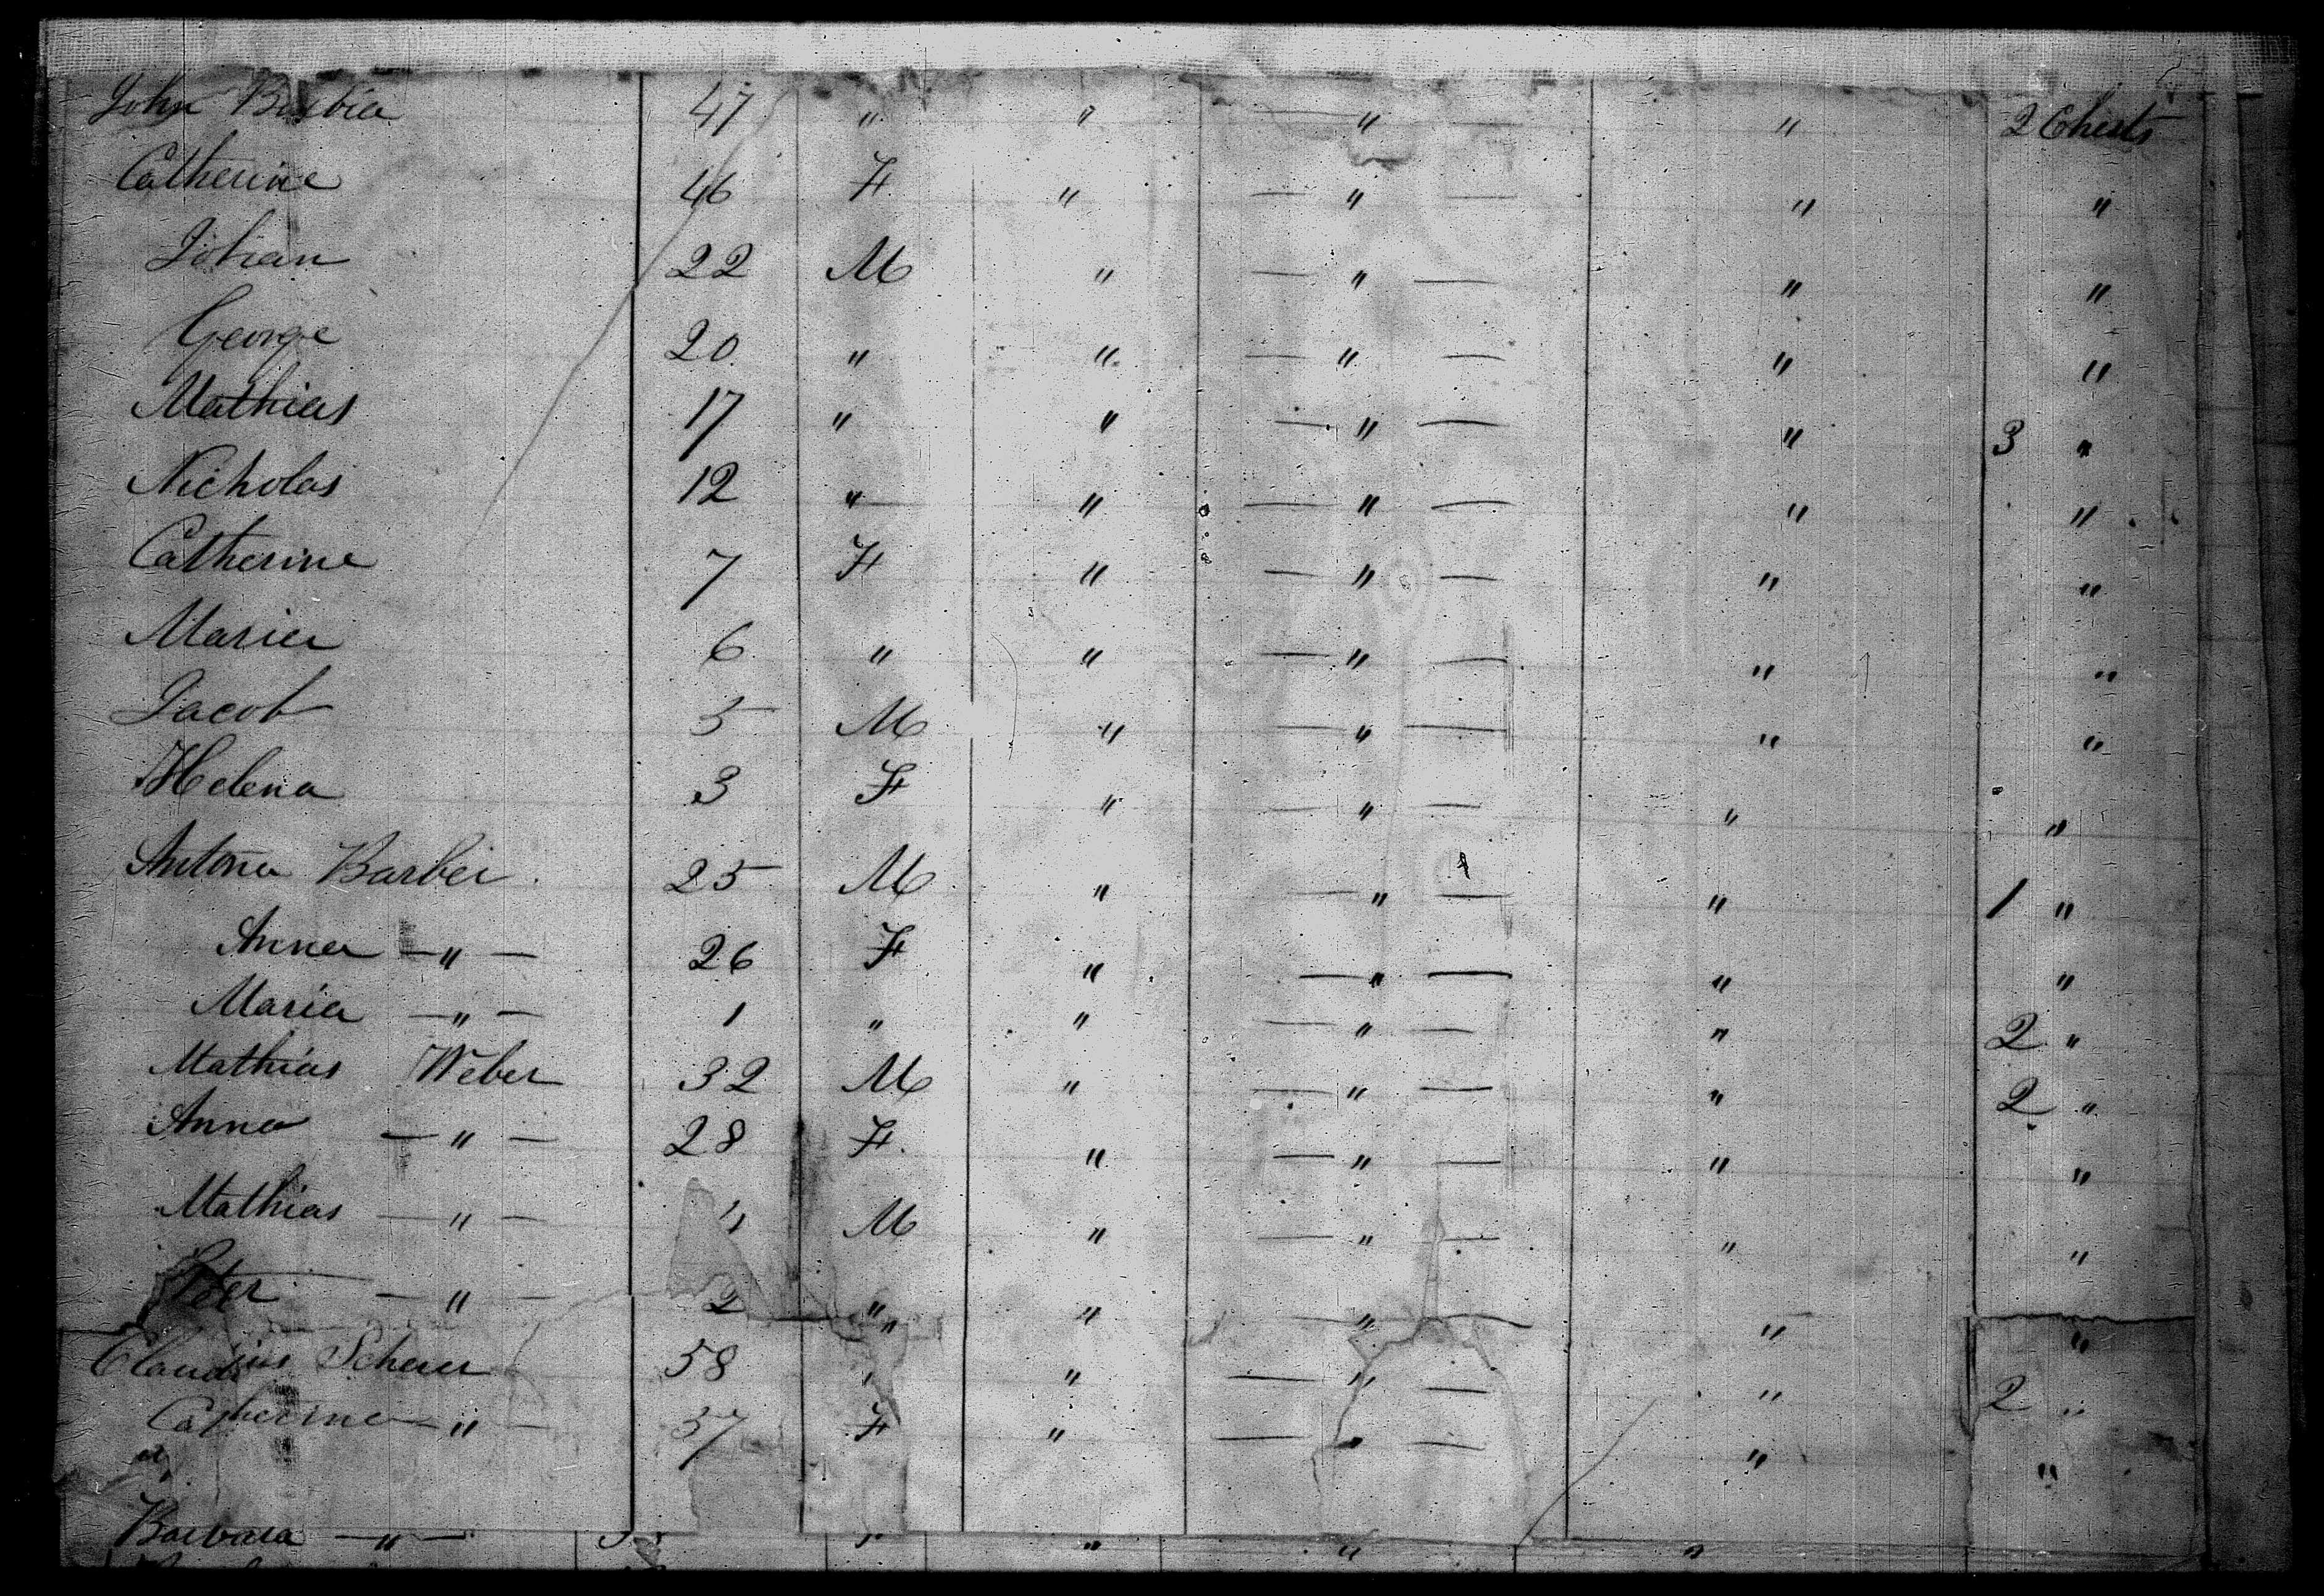 John 47 " " — " — " 2 Chests
Catherine 46 F " — " — " "
Johan 22 M " — " — " "
George 20 " " — " — " "
Mathias 17 " " — " — " 3 "
Nicholas 12 " " — " — " "
Catherine 7 F " — " — " "
Maria 6 " " — " — " "
Jacob 5 M " — " — " "
Helena 3 F " — " — " "
Barbei 25 M " — " — " 1 "
Anna — " — 26 F " — " — " "
Maria — " — 1 " " — " — " 2 "
Mathias Weber 32 M " — " — " 2 "
Anna — " — 28 F " — " — " "
Mathias — " — 4 M " — " — " "
Peter — " — 2 " " — " — " "
Claudius Scherer 58 " " — " — " 2 "
Catherine — " — 57 F " — " — " "
Barbara — " — " " " "